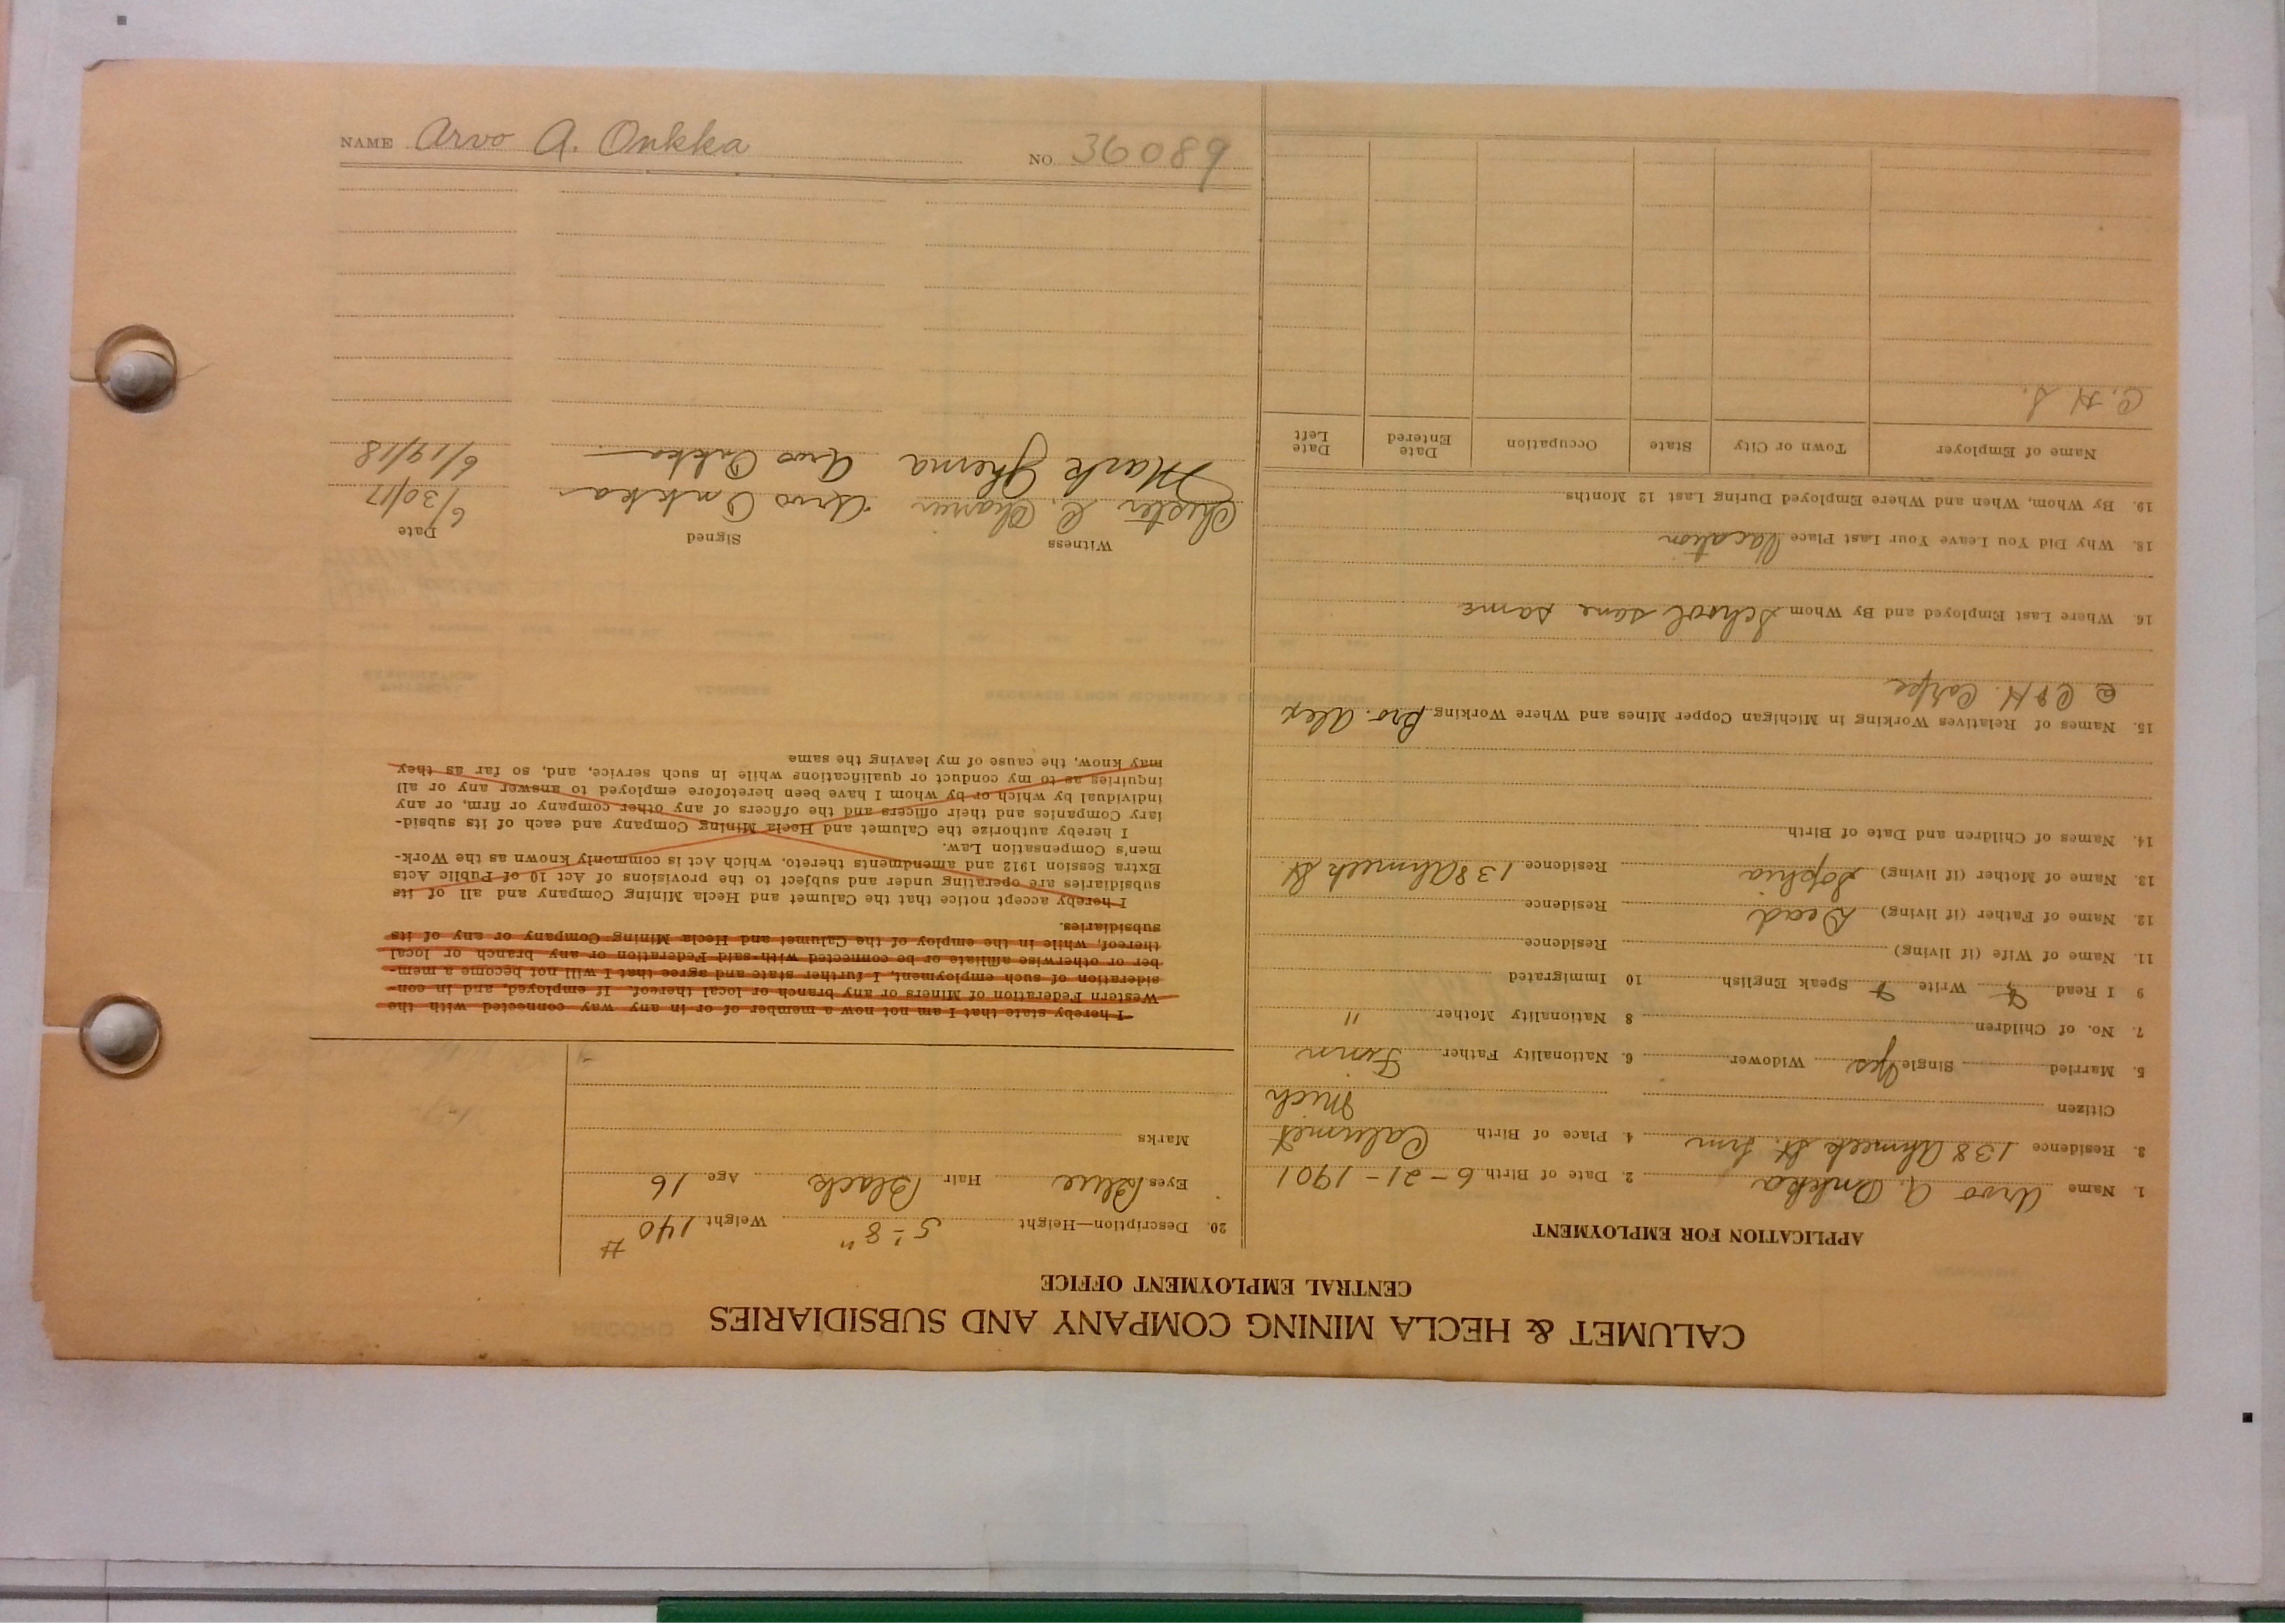 CALUMET & HECLA MINING COMPANY AND SUBSIDIARIES
CENTRAL EMPLOYMENT OFFICE
APPLICATION FOR EMPLOYMENT
1. Name Arvo A. Onkka 2. Date of Birth 6-21-1901
3. Residence 138 Ahmeek St. 4. Place of Birth Calumet
Citizen Mich
5. Married Single Yes Widower 6. Nationality Father Finn
7. No. of Children 8 Nationality Mother "
9 I Read Write Speak English 10 Immigrated
11. Name of Wife (if living) Residence
12. Name of Father (if living) Dead Residence
13. Name of Mother (if living) Sophia Residence 138 Ahmeek St
14. Names of Children and Date of Birth
15. Names of Relatives Working in Michigan Copper Mines and Where Working Bro. Alex
@ C & H. Carpe
16. Where Last Employed and By Whom School same same
18. Why Did You Leave Your Last Place Vacation
19. By Whom, When and Where Employed During Last 12 Months
Name of Employer Town or City State Occupation Date Entered Date Left
C. H. S.
20. Description—Height 5'-8" Weight 140 #
Eyes Blue Hair Black Age 16
Marks
I hereby state that I am not now a member of or in any way connected with the
Western Federation of Miners or any branch or local thereof. If employed, and in con-
sideration of such employment, I further state and agree that I will not become a mem-
ber or otherwise affiliate or be connected with said Federation or any branch or local
thereof, while in the employ of the Calumet and Hecla Mining Company or any of its
subsidiaries.
I hereby accept notice that the Calumet and Hecla Mining Company and all of its
subsidiaries are operating under and subject to the provisions of Act 10 of Public Acts
Extra Session 1912 and amendments thereto, which Act is commonly known as the Work-
men's Compensation Law.
I hereby authorize the Calumet and Hecla Mining Company and each of its subsid-
iary Companies and their officers and the officers of any other company or firm, or any
individual by which or by whom I have been heretofore employed to answer any or all
inquiries as to my conduct or qualifications while in such service, and, so far as they
may know, the cause of my leaving the same
Witness Signed Date
Chester C. Arvo Onkka 6/30/17
Mark Gherna Arvo Onkka 6/19/18
NAME Arvo A. Onkka NO 36089